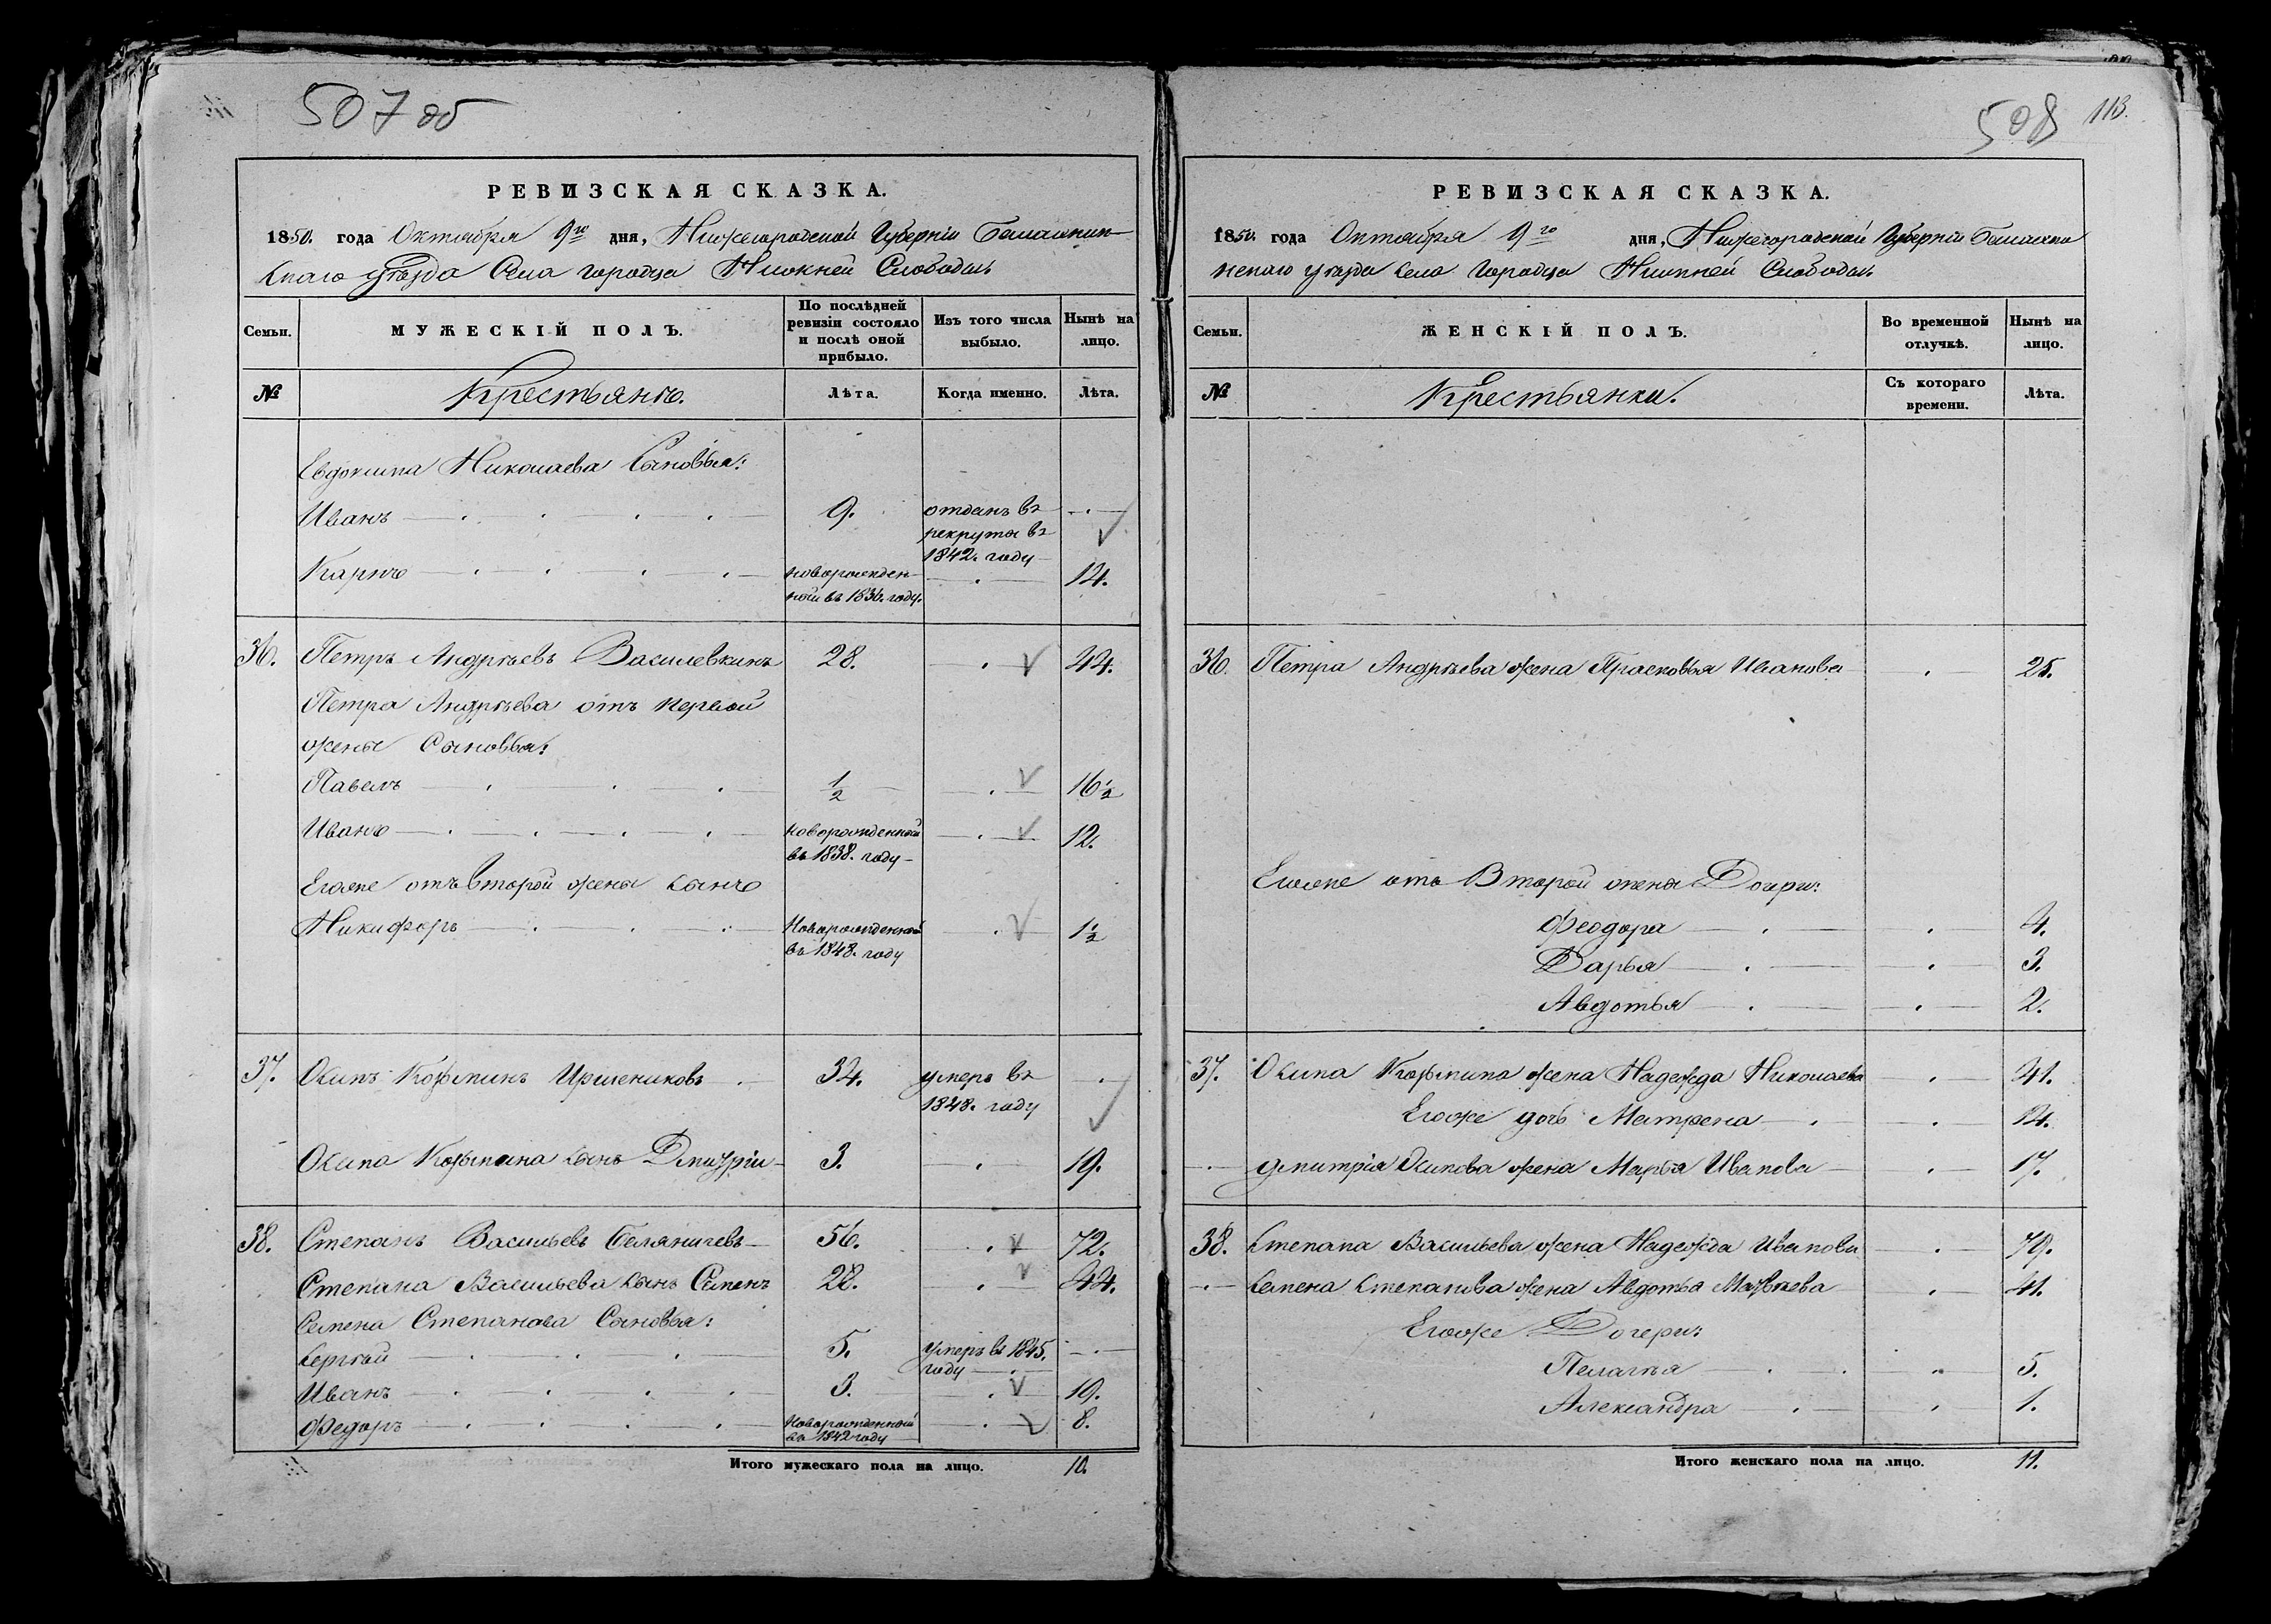 507 об
РЕВИЗСКАЯ СКАЗКА.
1850. года Октября 9го дня, Нижегородской Губернiи Балахнин-
скаго уѣзда Села Городца Нижней Слободы
Семьи.
МУЖЕСКIЙ ПОЛЪ.
По послѣдней ревизiи состояло и послѣ оной прибыло.
Изъ того числа выбыло.
Нынѣ на лицо.
№
Крестьянъ.
Лѣта.
Когда именно.
Лѣта.
Евдокима Николаева Сыновья:
Иванъ 9. отданъ въ
рекруты въ
1842. году
Карпъ новорожден- 14.
ной въ 1836. году.
36. Петръ Андрѣевъ Василевкинъ 28. 44.
Петра Андрѣева отъ первой
жены Сыновья:
Павелъ 1/2 16 1/2
Иванъ новорожденной 12.
въ 1838. году
Егоже отъ второй жены сынъ
Никифоръ Новорожденной 1 1/2
въ 1848. году
37. Осипъ Козьминъ 34. умеръ въ
1848. году
Осипа Козьмина сынъ Дмитрiй 3. 19.
38. Степанъ Васильевъ 56. 72.
Степана Васильева сынъ Семенъ 28. 44.
Семена Степанова Сыновья:
Сергѣй 5. умеръ въ 1845.
году
Иванъ 3. 19.
Федоръ Новорожденной 8.
въ 1842 году
Итого мужескаго пола на лицо. 10.
508 113.
РЕВИЗСКАЯ СКАЗКА.
1850. года Октября 9го дня, Нижегородской Губернiи Балахни
нскаго уѣзда села Городца Нижней Слободы
Семьи.
ЖЕНСКIЙ ПОЛЪ.
Во временной отлучкѣ.
Нынѣ на лицо.
№
Крестьянки.
Съ котораго времени.
Лѣта.
36. Петра Андрѣева жена Прасковья Иванова 25.
Егоже отъ Второй жены Дочери:
Феодора 4.
Дарья 3.
Авдотья 2.
37. Осипа Козьмина жена Надежда Николаева 41.
Егоже дочь Матрена 14.
Дмитрiя Осипова жена Марья Иванова 17.
38. Степана Васильева жена Надежда Иванова 70.
Семена Степанова жена Авдотья Матвѣева 41.
Егоже Дочери:
Пелагѣя 5.
Александра 1.
Итого женскаго пола на лицо. 11.